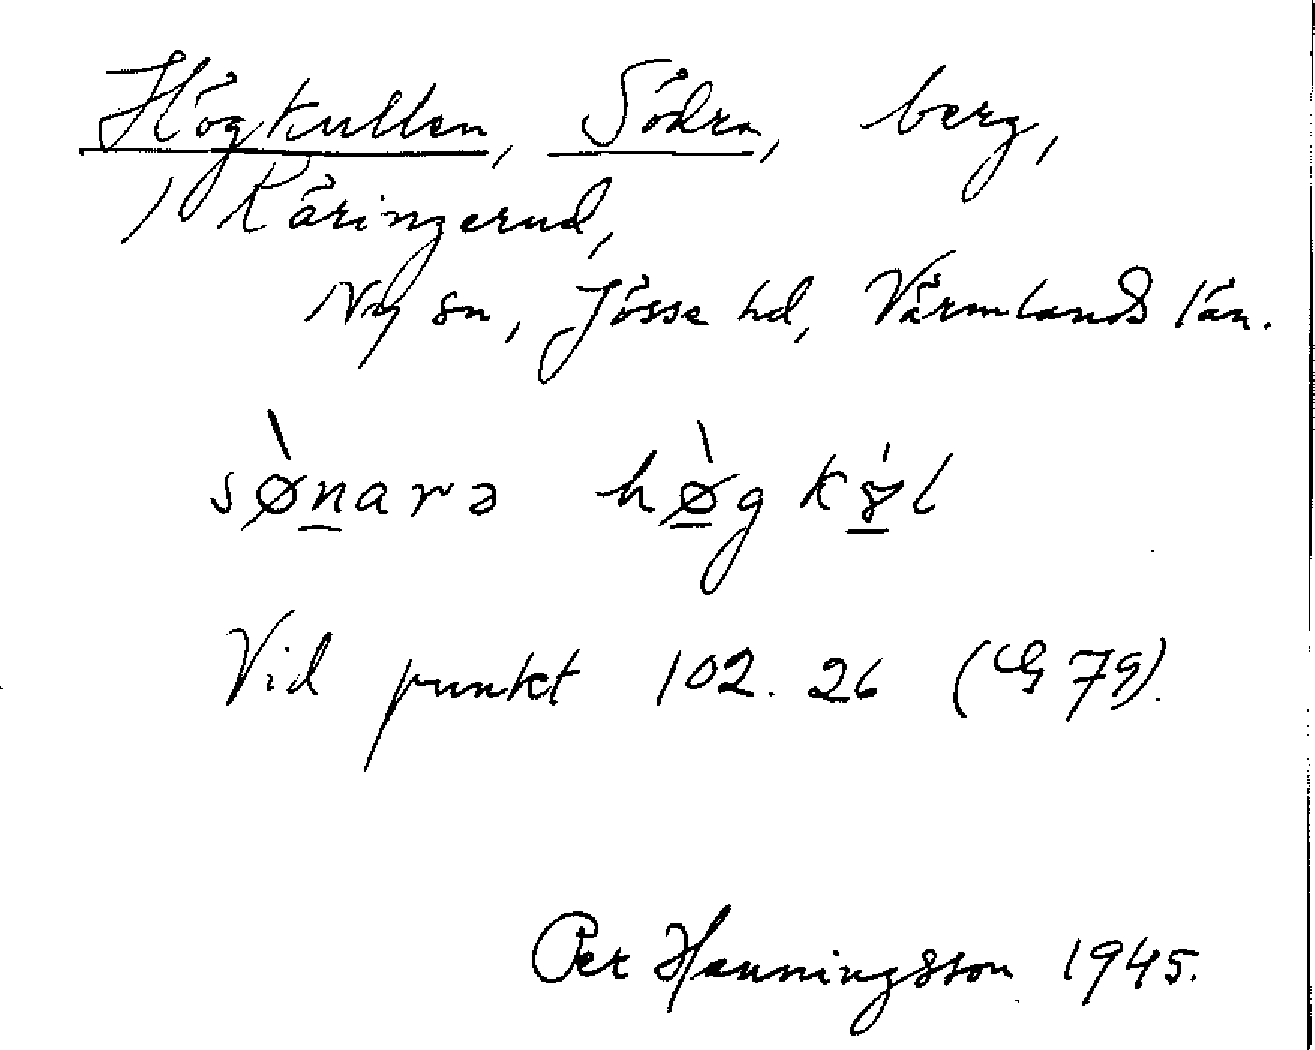 Högkullen, Södra, berg,
i Käringerud,
Ny sn, Jösse hd, Värmlands län.
sø̀n̲arə hø̲̀gkɣ̲̍l
Vid punkt 102.26 (G 79).
Per Henningsson 1945.